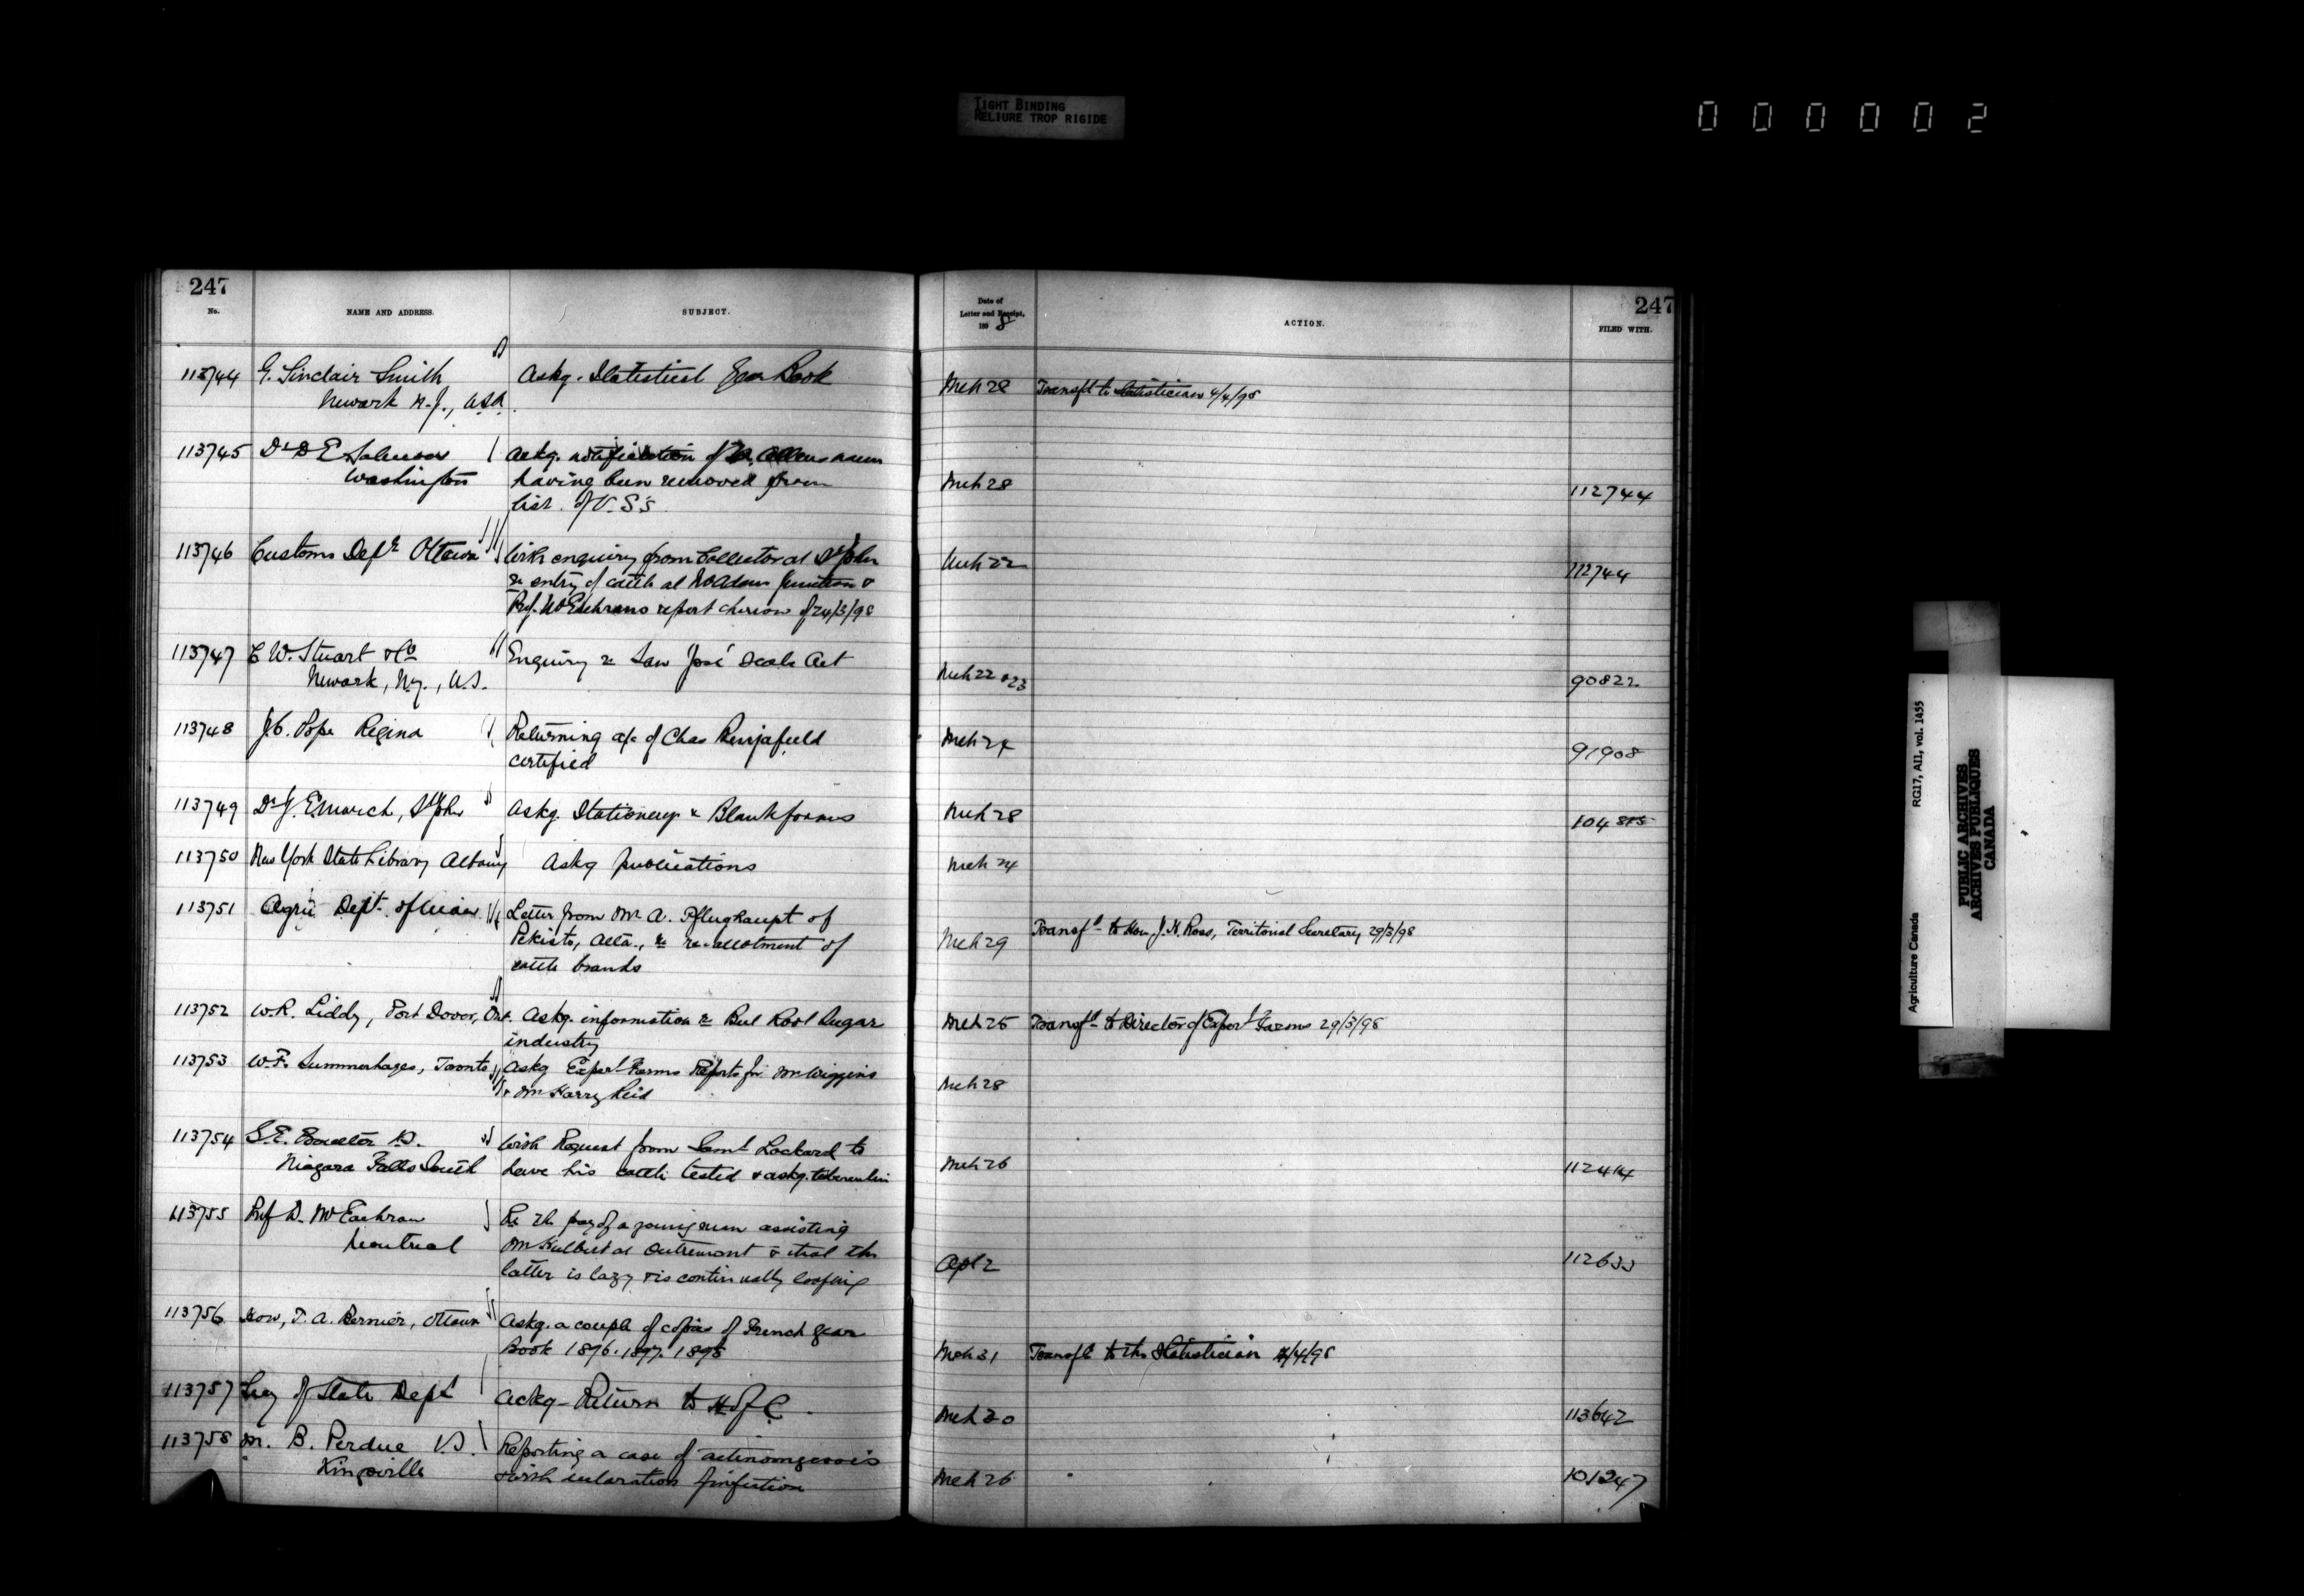 TIGHT BINDING
RELIURE TROP RIGIDE
000002
247
No.
NAME AND ADDRESS.
SUBJECT.
Date of
Letter and Receipt,
1898
ACTION.
247
FILED WITH.
113744 G. Sinclair Smith Askg. Statistical Year Book Mch 28 Transfd to Statistician 4/4/98
Newark N.J., USA.
113745 Dr D E Salmon Askg. notification of Dr.
Washington having been removed from Mch 28 112744
list of V.S's.
113746 Customs Dept Ottawa With enquiry from Collector at St John Mch 22 112744
re entry of cattle at McAdam Junction &
Prof. McEachrans report thereon of 24/3/98
113747 C W. Stuart & Co Enquiry re San José Scale Act Mch 22 & 23 90822
Newark, N.Y., U.S.
113748 J.C. Pope Regina Returning a/c of Chas certified Mch 24 91908
113749 Dr J. E. March, St John Askg. Stationery & Blank forms Mch 28 104
113750 New York State Library Albany Askg publications Mch 24
113751 Agric Dept. of Letter from Mr A. Pflughaupt of
Pekisko, Alta., re re-allotment of Mch 29 Transfd to Hon. J. H. Ross, Territorial Secretary 29/3/98
cattle brands
113752 W.R. Liddy, Port Dover, Ont. Askg. information re Beet Root Sugar Mch 25 Transfd to Director of Experl Farms 29/3/98
industry
113753 W.F. Summerhayes, Toronto Askg Experl Farms Reports for Mr Wiggins
& Mr Harry Reid Mch 28
113754 S.E. Boulter V.S. With Request from Saml Lockard to
Niagara Falls South have his cattle tested & askg. tuberculin Mch 26 112414
113755 Prof D. McEachran Re the pay of a young man assisting
Montreal Mr at Outremont & that the
latter is lazy & is continually loafing Apl 2 112633
113756 Hon. T. A. Bernier, Ottawa Askg. a couple of copies of French Year
Book 1896. 1897. 1898 Mch 31 Transfd to the Statistician 4/4/98
113757 Secy of State Dept Ackg Return to H of C. Mch 30 113642
113758 M. B. Perdue V.S. Reporting a case of actinomycosis
Kingsville & with declaration of infection Mch 26 101247
Agriculture Canada
RG17, AII, vol. 1455
PUBLIC ARCHIVES
ARCHIVES PUBLIQUES
CANADA